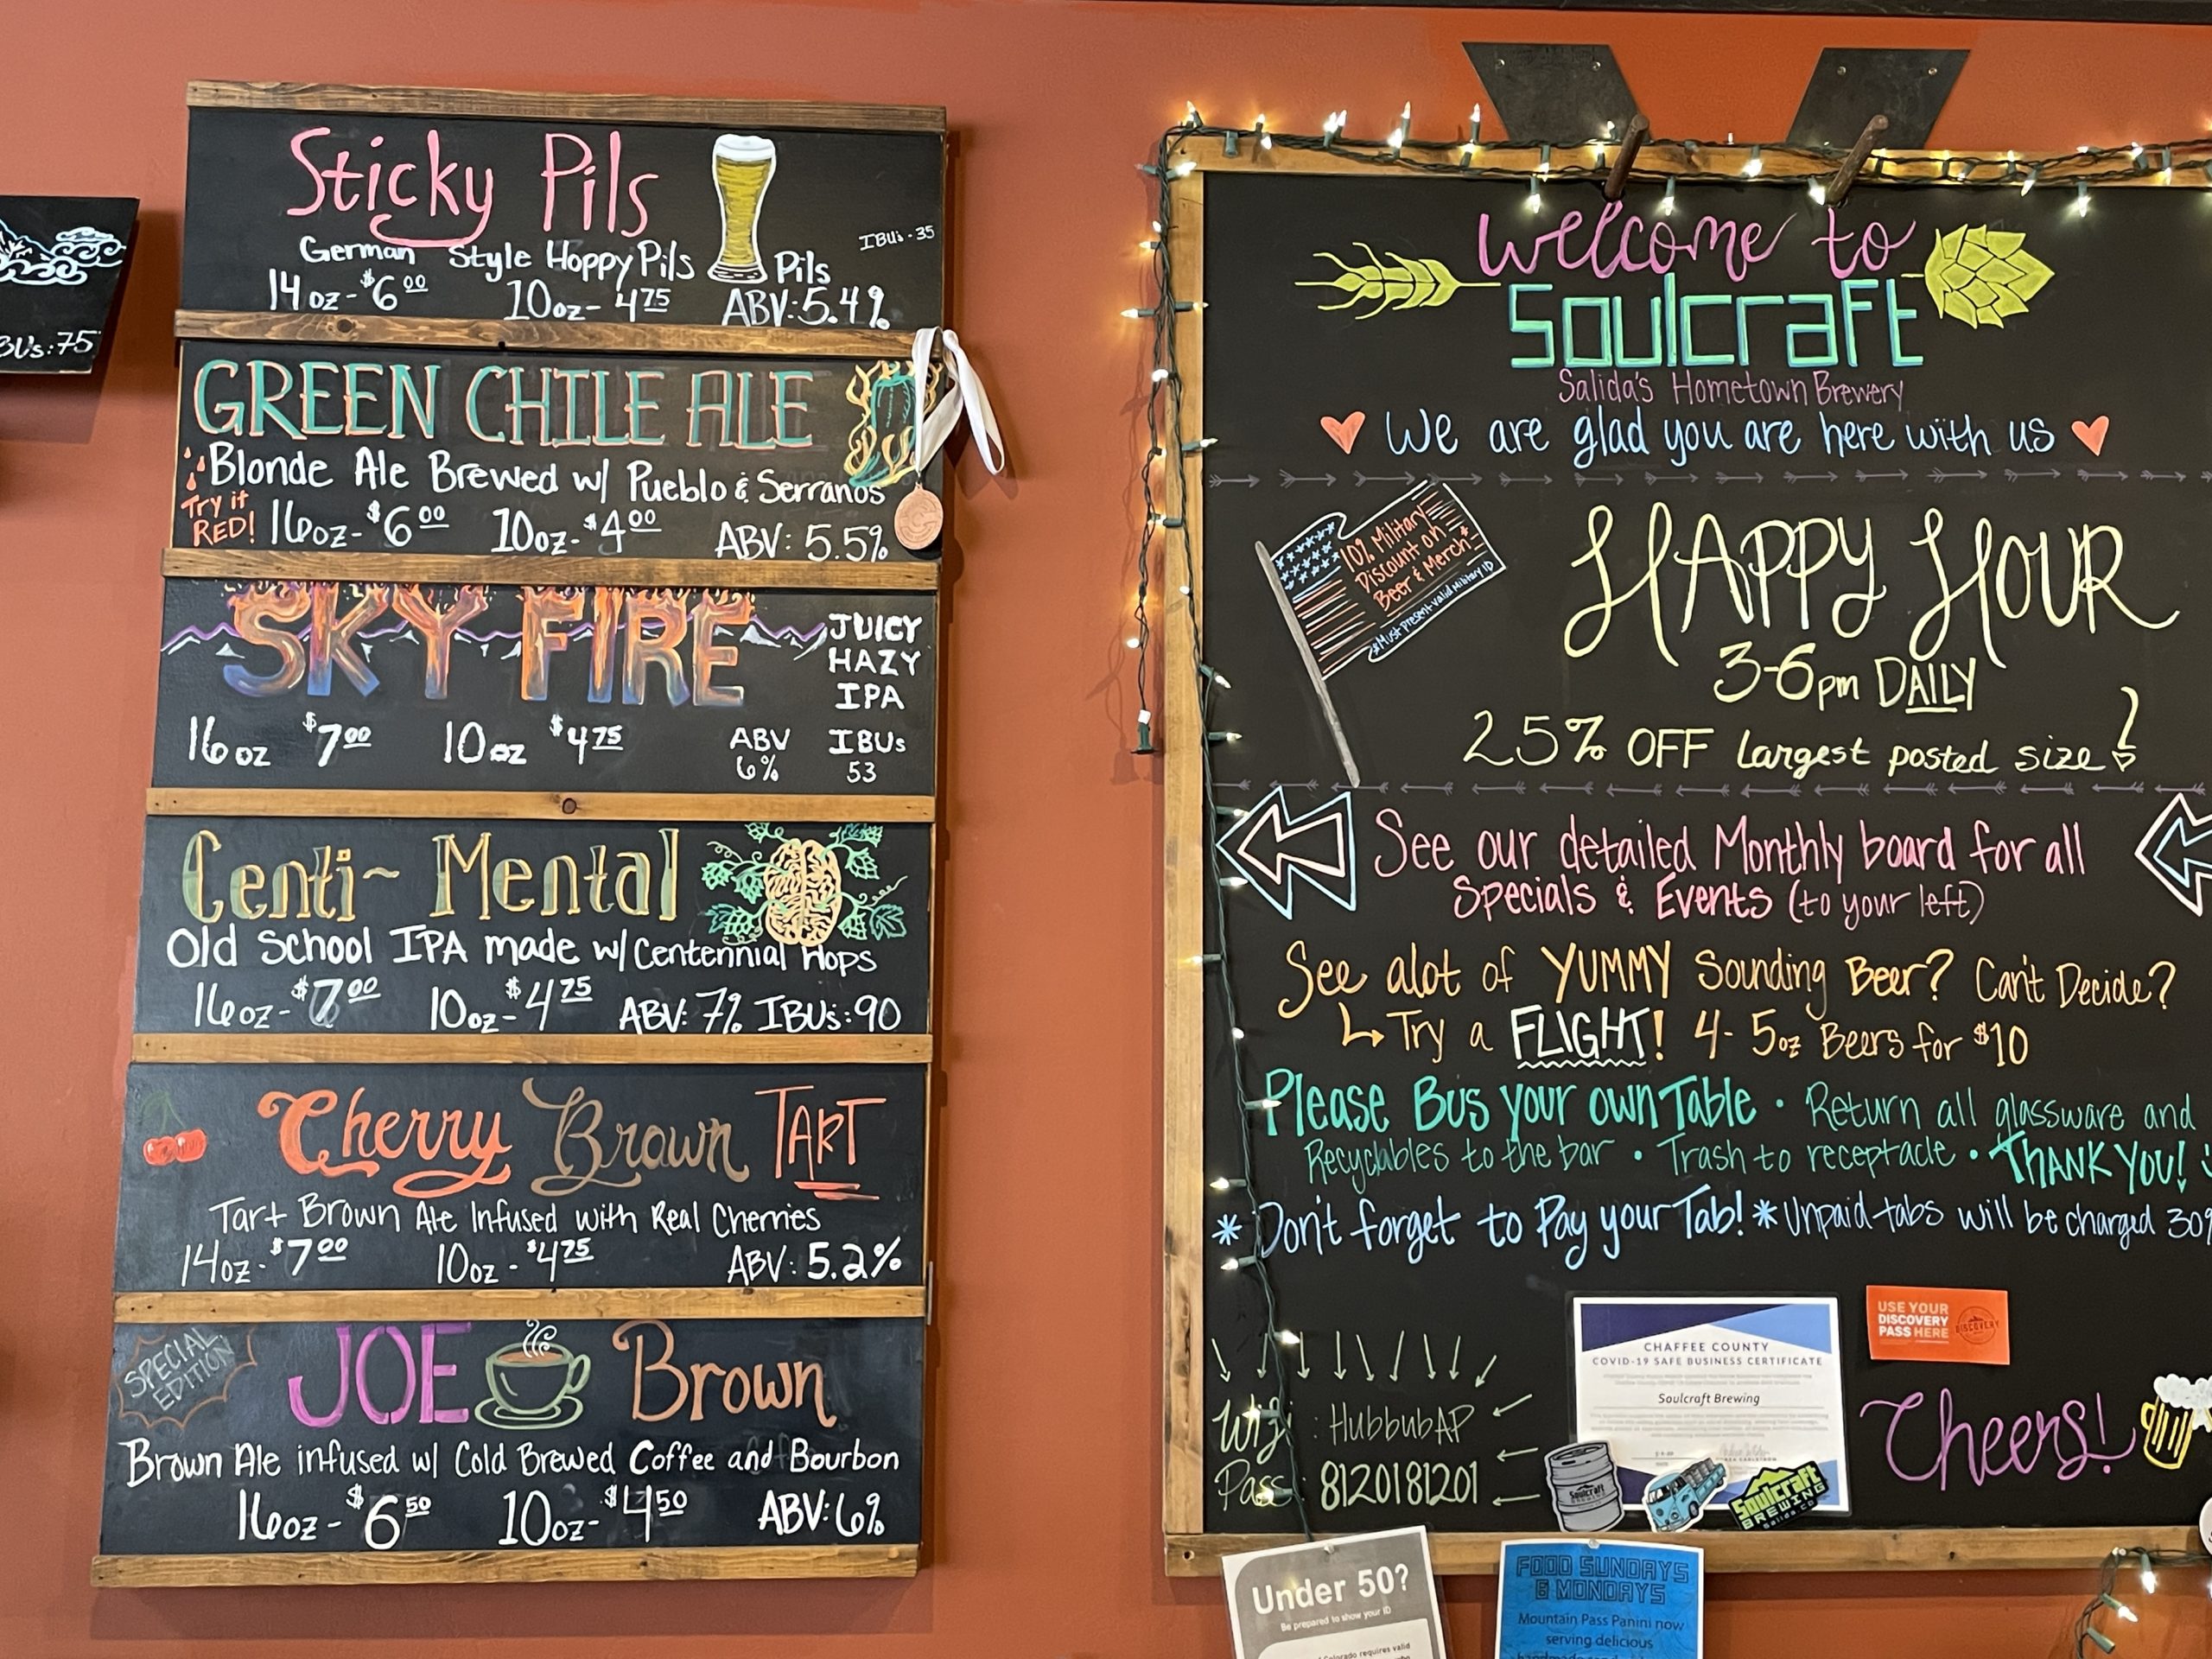 BUs: 75
Sticky Pils
IBUs - 35
German Style Hoppy Pils Pils
14oz - $6.00 10oz - 4.75 ABV: 5.4%
GREEN CHILE ALE
Blonde Ale Brewed w/ Pueblo & Serranos
Try it
RED! 16oz - $6.00 10oz - $4.00 ABV: 5.5%
SKY FIRE
JUICY
HAZY
IPA
16oz $7.00 10oz $4.75
ABV IBUs
6% 53
Centi~Mental
Old School IPA made w/ Centennial Hops
16oz - $7.00 10oz - $4.75 ABV: 7% IBUs: 90
Cherry Brown TART
Tart Brown Ale Infused with Real Cherries
14oz - $7.00 10oz - $4.75 ABV: 5.2%
SPECIAL
EDITION
JOE Brown
Brown Ale infused w/ Cold Brewed Coffee and Bourbon
16oz - $6.50 10oz - $4.50 ABV: 6%
Welcome to
Soulcraft
Salida's Hometown Brewery
We are glad you are here with us
10% Military
Discount on
Beer & Merch*
*Must present valid Military ID
HAPPY HOUR
3-6pm DAILY
25% OFF largest posted size!
See our detailed Monthly board for all
Specials & Events (to your left)
See alot of YUMMY Sounding Beer? Can't Decide?
Try a FLIGHT! 4 - 5oz Beers for $10
Please Bus your own Table • Return all glassware and
Recyclables to the bar • Trash to receptacle • THANK YOU!
* Don't forget to Pay your Tab! * Unpaid tabs will be charged 30%
Wifi : HubbubAP
Pass : 8120181201
CHAFFEE COUNTY
COVID-19 SAFE BUSINESS CERTIFICATE
Soulcraft Brewing
USE YOUR
DISCOVERY
PASS HERE
DISCOVERY
Cheers!
Soulcraft
Soulcraft
BREWING
Salida, CO
Under 50?
Be prepared to show your ID
Colorado requires valid
FOOD SUNDAYS
& MONDAYS
Mountain Pass Panini now
serving delicious